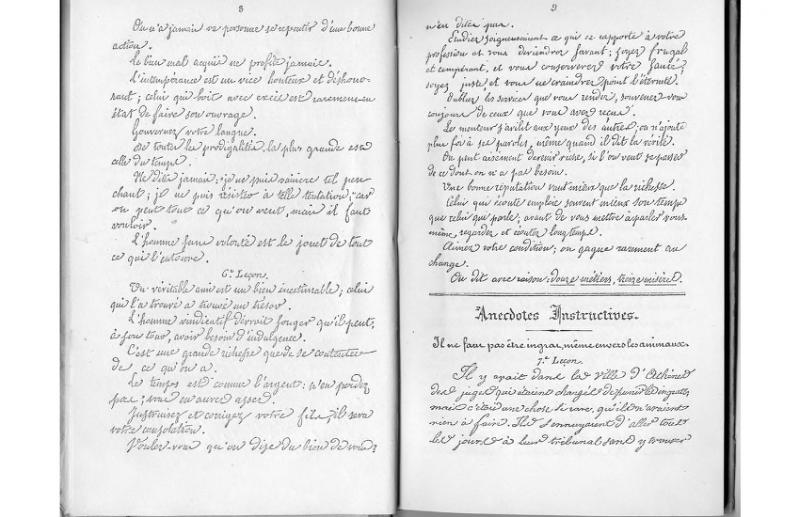 8
On n'a jamais vu personne se repentir d'une bonne
action.
Le bien mal acquis ne profite jamais.
L'intempérance est un vice honteux et déshono-
rant; celui qui boit avec excès est rarement en
état de faire son ouvrage.
Gouvernez votre langue.
De toutes les prodigalités la plus grande est
celle du temps.
Ne dites jamais: je ne puis vaincre tel pen-
chant; je ne puis résister à telle tentation; car
on peut tout ce qu'on veut, mais il faut
vouloir.
L'homme sans volonté est le jouet de tout
ce qui l'entoure.
6e Leçon.
Un véritable ami est un bien inestimable; celui
qui l'a trouvé a trouvé un trésor.
L'homme vindicatif devrait songer qu'il peut,
à son tour, avoir besoin d'indulgence.
C'est une grande richesse que de se contenter
de ce qu'on a.
Le temps est comme l'argent: n'en perdez
pas; vous en aurez assez.
Instruisez et corrigez votre fils, il sera
votre consolation.
Voulez-vous qu'on dise du bien de vous?
9
n'en dites pas.
Étudiez soigneusement ce qui se rapporte à votre
profession et vous deviendrez savant; soyez frugal
et tempérant, et vous conserverez votre santé;
soyez juste et vous ne craindrez point l'éternité.
Oubliez les services que vous rendez, souvenez-vous
toujours de ceux que vous avez reçus.
Le menteur s'avilit aux yeux des autres; on n'ajoute
plus foi à ses paroles, même quand il dit la vérité.
On peut aisément devenir riche, si l'on veut se passer
de ce dont on n'a pas besoin.
Une bonne réputation vaut mieux que la richesse.
Celui qui écoute emploie souvent mieux son temps
que celui qui parle; avant de vous mettre à parler vous-
même, regardez et écoutez longtemps.
Aimez votre condition; on gagne rarement au
change.
On dit avec raison: douze métiers, treize misères.
Anecdotes Instructives.
Il ne faut pas être ingrat, même envers les animaux.
7e Leçon.
Il y avait dans la ville d'Athènes
des juges qui étaient chargés de punir les ingrats,
mais c'était une chose si rare, qu'ils n'avaient
rien à faire. Ils s'ennuyaient d'aller tous
les jours à leur tribunal sans y trouver